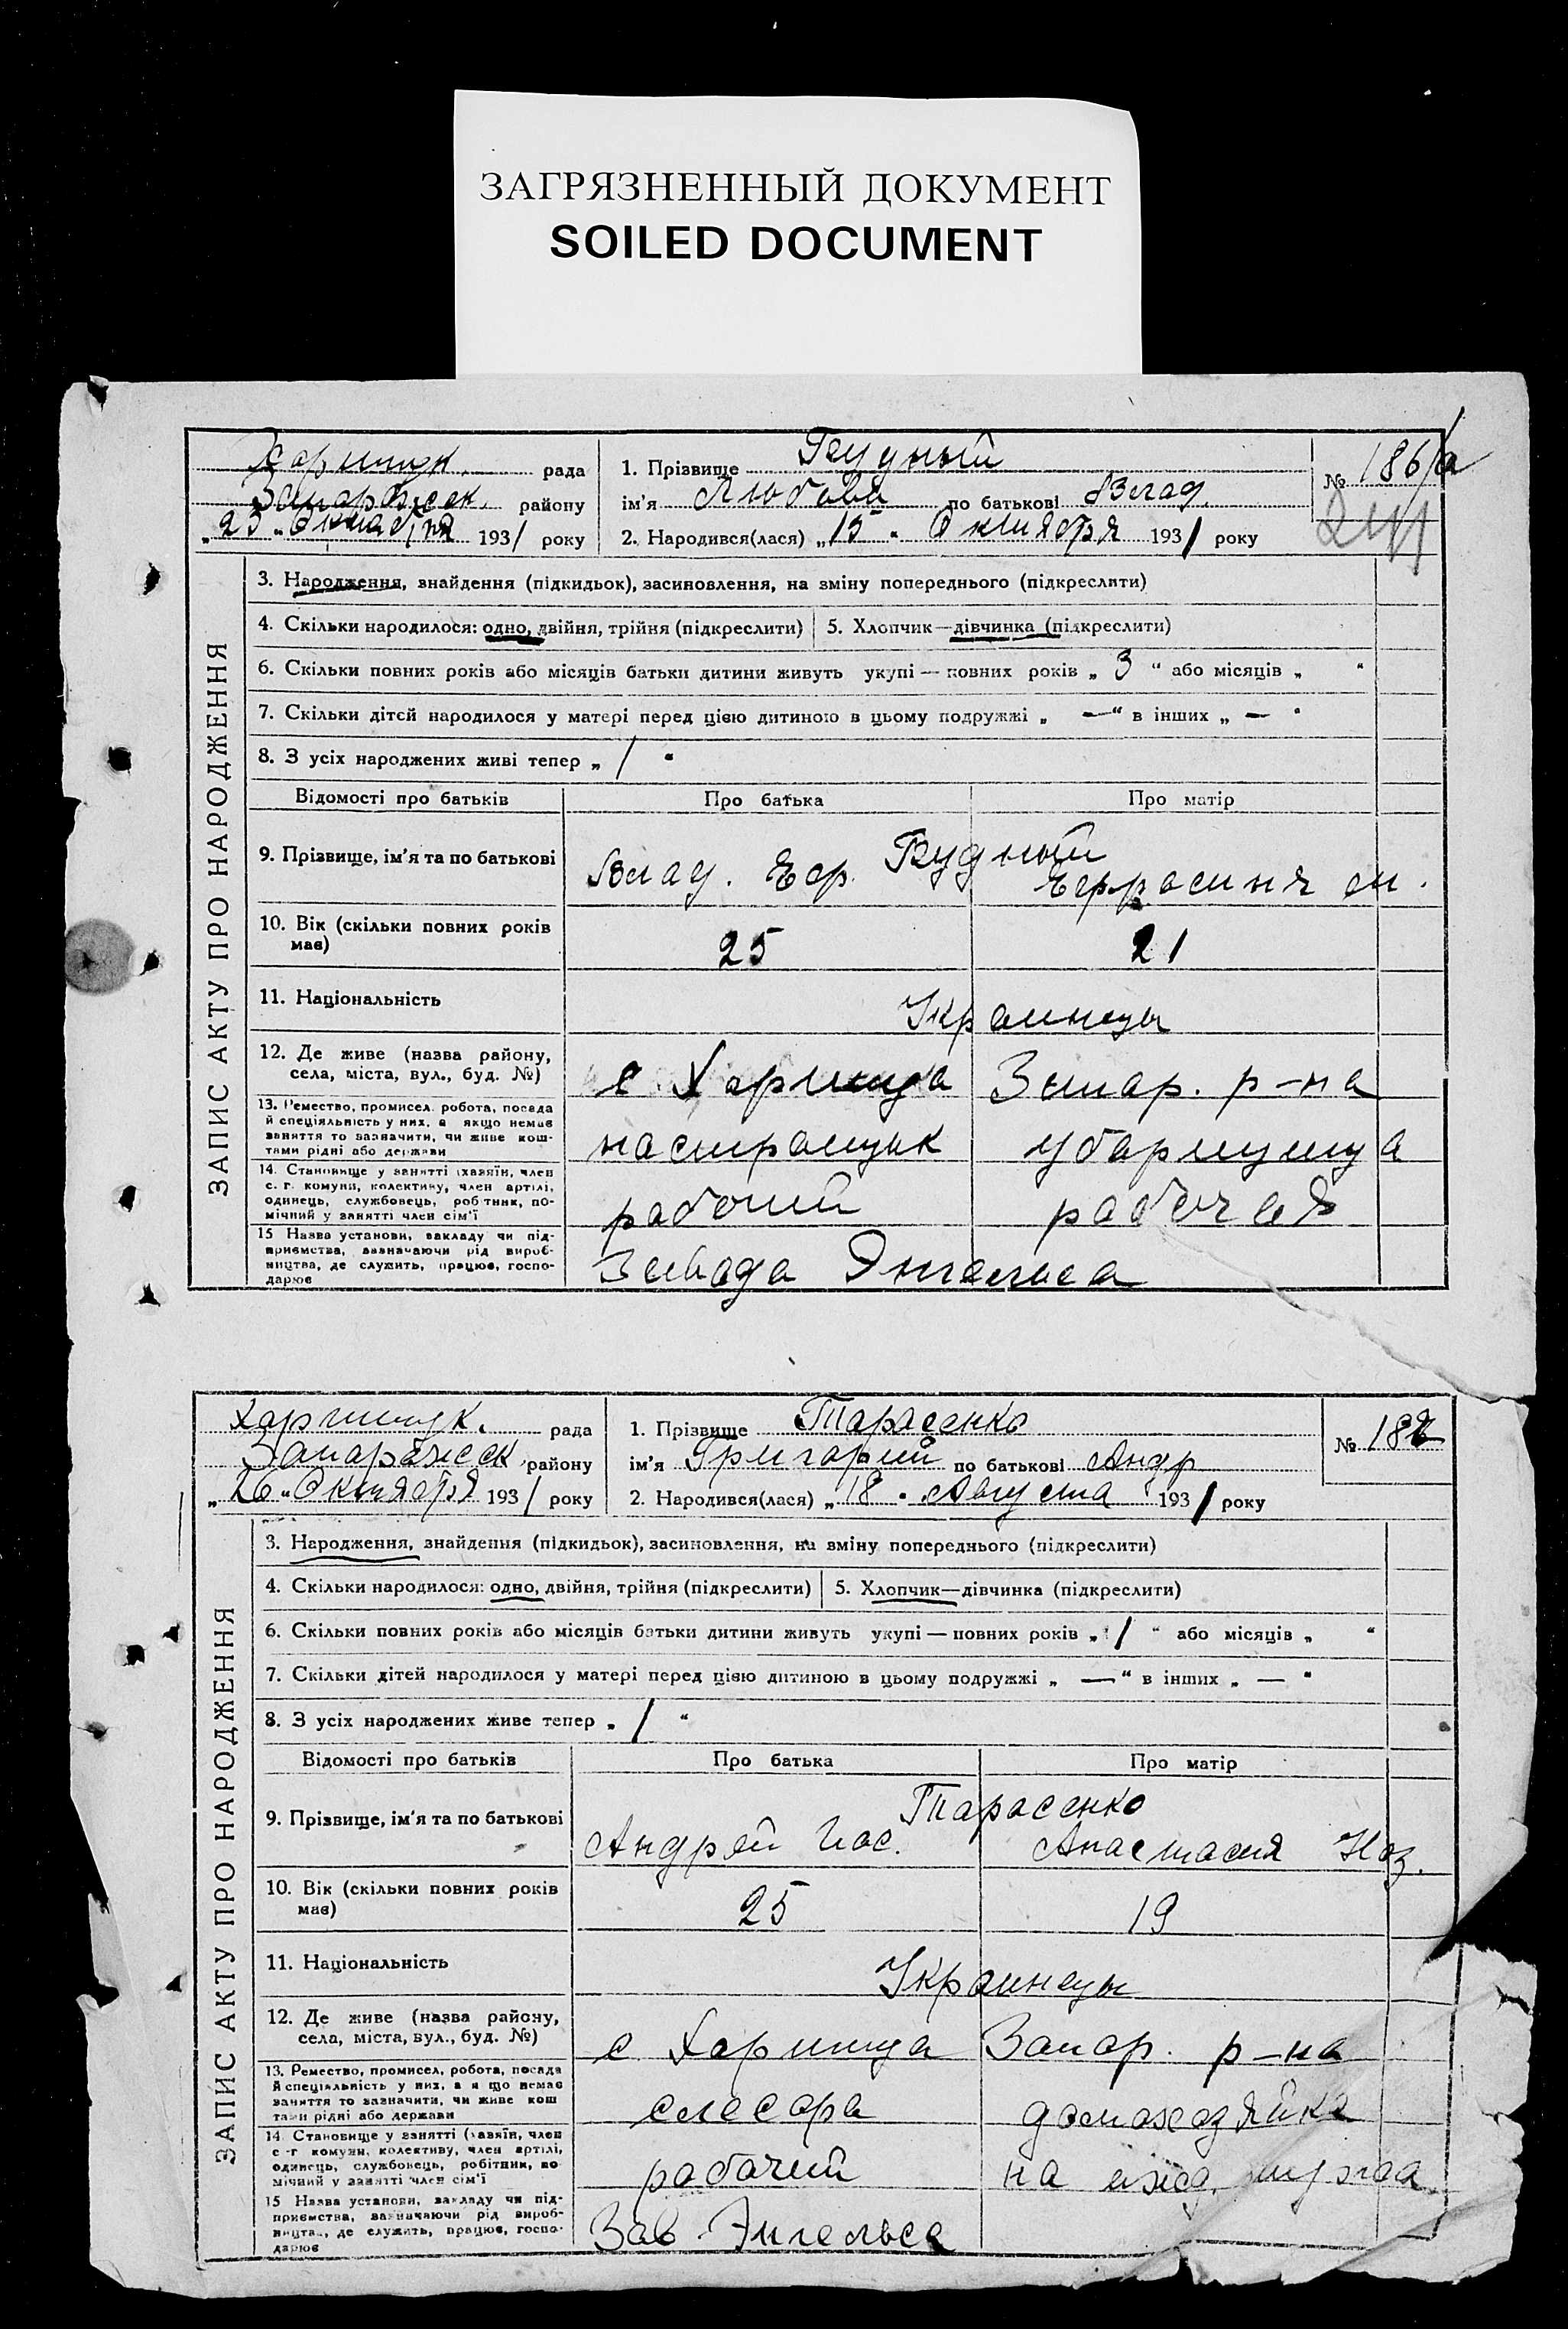 ЗАГРЯЗНЕННЫЙ ДОКУМЕНТ
SOILED DOCUMENT
Хортицк. рада
Запорожск. району
„ 25 " Октября 1931 року
1. Прізвище Рудный
ім'я Любовь по батькові Влад.
2. Народився(лася) „ 15 " Октября 1931 року
№ 186/а
ЗАПИС АКТУ ПРО НАРОДЖЕННЯ
3. Народження, знайдення (підкидьок), засиновлення, на зміну попереднього (підкреслити)
4. Скільки народилося: одно, двійня, трійня (підкреслити) 5. Хлопчик—дівчинка (підкреслити)
6. Скільки повних років або місяців батьки дитини живуть укупі — повних років „ 3 " або місяців „ "
7. Скільки дітей народилося у матері перед цією дитиною в цьому подружжі „ — " в інших „ — "
8. З усіх народжених живі тепер „ 1 "
Відомості про батьків Про батька Про матір
9. Прізвище, ім'я та по батькові Рудный
Влад. Еф. Ефросиния
10. Вік (скільки повних років має) 25 21
11. Національність Украинцы
12. Де живе (назва району,
села, міста, вул., буд. №) с. Хортица Запор. р-на
13. Ремество, промисел, робота, посада
й спеціяльність у них, а якщо немає
заняття то зазначити, чи живе кош-
тами рідні або держави уборщица
14. Становище у занятті (хазяїн, член
с.-г. комуни, колективу, член артілі,
одинець, службовець, робітник, по-
мічний у занятті член сім'ї рабочий рабочая
15 Назва установи, закладу чи під-
приємства, зазначаючи рід вироб-
ництва, де служить, працює, госпо-
дарює Завода Энгельса
Хортицк. рада
Запорожск. району
„ 26 " Октября 1931 року
1. Прізвище Тарасенко
ім'я Григорий по батькові Андр
2. Народився(лася) „ 18 " Августа 1931 року
№ 187
ЗАПИС АКТУ ПРО НАРОДЖЕННЯ
3. Народження, знайдення (підкидьок), засиновлення, на зміну попереднього (підкреслити)
4. Скільки народилося: одно, двійня, трійня (підкреслити) 5. Хлопчик—дівчинка (підкреслити)
6. Скільки повних років або місяців батьки дитини живуть укупі — повних років „ 1 " або місяців „ "
7. Скільки дітей народилося у матері перед цією дитиною в цьому подружжі „ — " в інших „ — "
8. З усіх народжених живе тепер „ 1 "
Відомості про батьків Про батька Про матір
9. Прізвище, ім'я та по батькові Тарасенко
Андрей Анастасия
10. Вік (скільки повних років має) 25 19
11. Національність Украинцы
12. Де живе (назва району,
села, міста, вул., буд. №) с. Хортица Запор. р-на
13. Ремество, промисел, робота, посада
й спеціяльність у них, а якщо немає
заняття то зазначити, чи живе кош
тами рідні або держави слесаря домохозяйка
14. Становище у занятті (хазяїн, член
с.-г. комуни, колективу, член артілі,
одинець, службовець, робітник, по
мічний у занятті член сім'ї рабочий на ижд. мужа
15 Назва установи, закладу чи під-
приємства, зазначаючи рід вироб-
ництва, де служить, працює, госпо-
дарює Зав. Энгельса